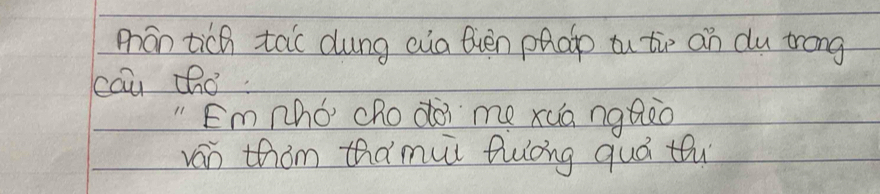 Phân tích tác dụng của biện pháp tu từ ẩn dụ trong
câu thơ :
" Em nhớ chợ đời mẹ xưa nghèo
vẫn thơm thơ mùi hương quả thị